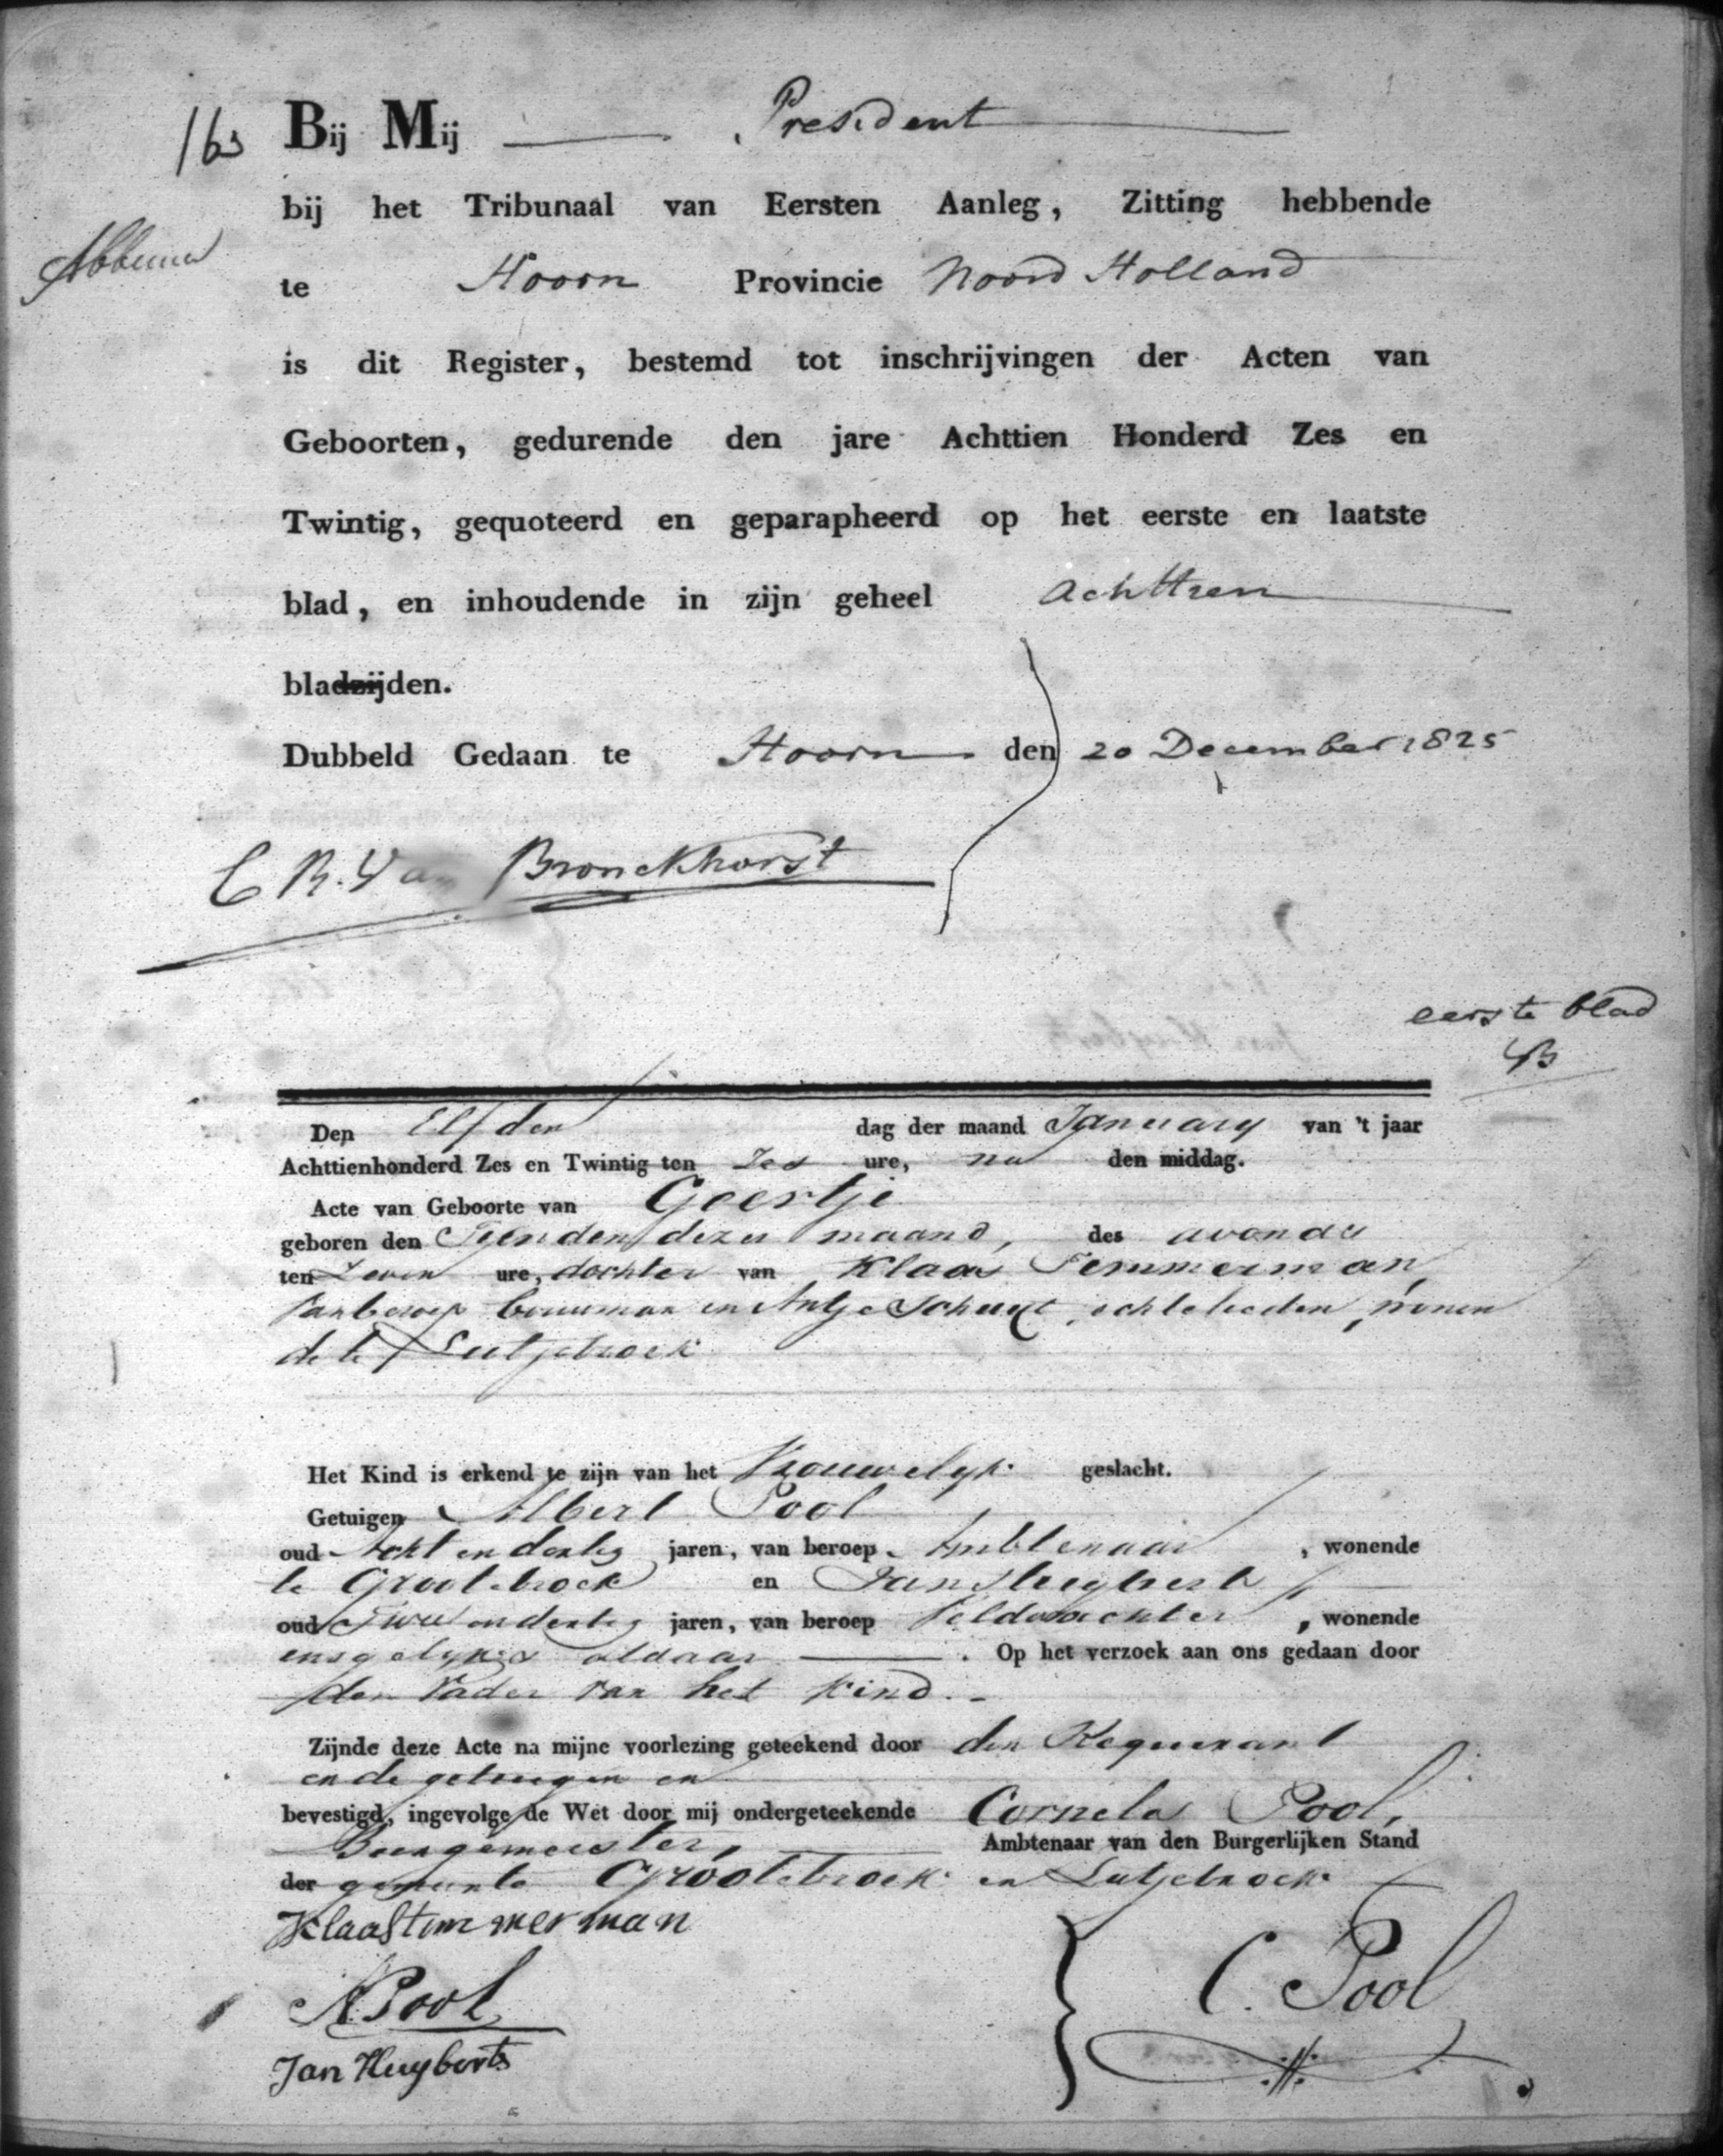 Bij Mij President
bij het Tribunaal van Eersten Aanleg, Zitting hebbende
te Hoorn Provincie Noord Holland
is dit Register, bestemd tot inschrijvingen der Acten van
Geboorten, gedurende den jare Achttien Honderd Zes en
Twintig, gequoteerd en geparapheerd op het eerste en laatste
blad, en inhoudende in zijn geheel achttien
bladzijden.
Dubbeld Gedaan te Hoorn den 20 December 1825
C R. Van Bronckhorst
eerste blad
VB
Den Elfden dag der maand January van 't jaar
Achttienhonderd Zes en Twintig ten Zes ure, na den middag.
Acte van Geboorte van Geertje
geboren den Tienden dezer maand, des avonds
ten Zeven ure, dochter van Klaas Temmerman,
van beroep bouwman en Antje Schuyt, echtelieden, wonen
de te Lutjebroek
Het Kind is erkend te zijn van het Vrouwelyk geslacht.
Getuigen Albert Pool
oud Acht en dertig jaren, van beroep Ambtenaar, wonende
te Grootebroek en Jan Huyberts
oud Twee en dertig jaren, van beroep Veldwachter, wonende
insgelyks aldaar. Op het verzoek aan ons gedaan door
den Vader van het Kind.
Zijnde deze Acte na mijne voorlezing geteekend door den Requirant
en de getuigen en
bevestigd, ingevolge de Wet door mij ondergeteekende Cornelis Pool,
Burgemeester, Ambtenaar van den Burgerlijken Stand
der gemeente Grootebroek en Lutjebroek
Klaas timmerman
A. Pool
C. Pool
Jan Huyberts